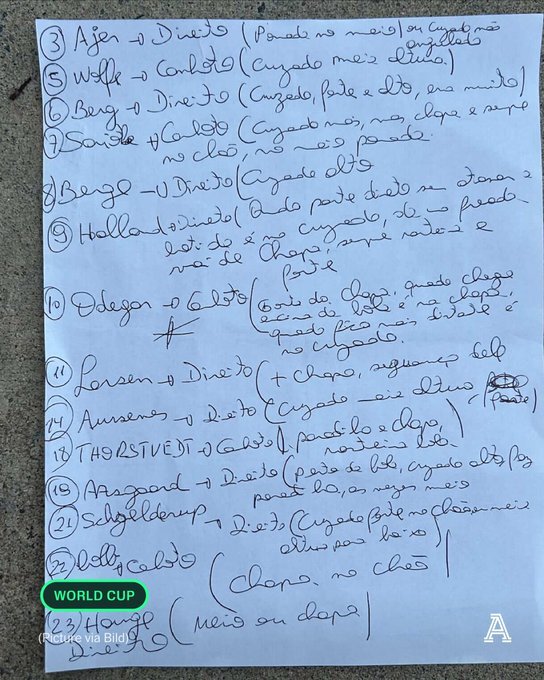 ③ Ajer → Direito (Parada no meio) ou cruzado não
⑤ Wolfe → Canhoto (Cruzado meia altura)
⑥ Berg → Direito (Cruzado, forte e alto, erra muito)
⑦ → Canhoto (Cruzado mas, chapa e sempre
no chão, no meio parada.
⑧ Berge → Direito (Cruzado alto
⑨ Holland → Direito (Quando parte direto sem
batida é no cruzado, se
vai de chapa, sempre rasteira e
forte
⑩ Odegar → Canhoto (Gosta da chapa, quando chega
acima da bola é na chapa,
quando fica mais distante é
no cruzado.
⑪ Larsen → Direito (+ chapa, segurança
⑭ Aursenes → Direito (Cruzado meia altura (forte)
⑱ THORSTVEDT → Canhoto ( paradinha e chapa,
rasteira
⑲ Aasgaard → Direito ( de bola, cruzado alto, faz
paradinha, as vezes meio
㉑ Schjelderup → Direito (Cruzado forte no chão ou meia
altura para baixo)
㉒ → Canhoto (Chapa no chão)
WORLD CUP
(23) Hauge (Meio ou chapa)
(Picture via Bild)
Direito